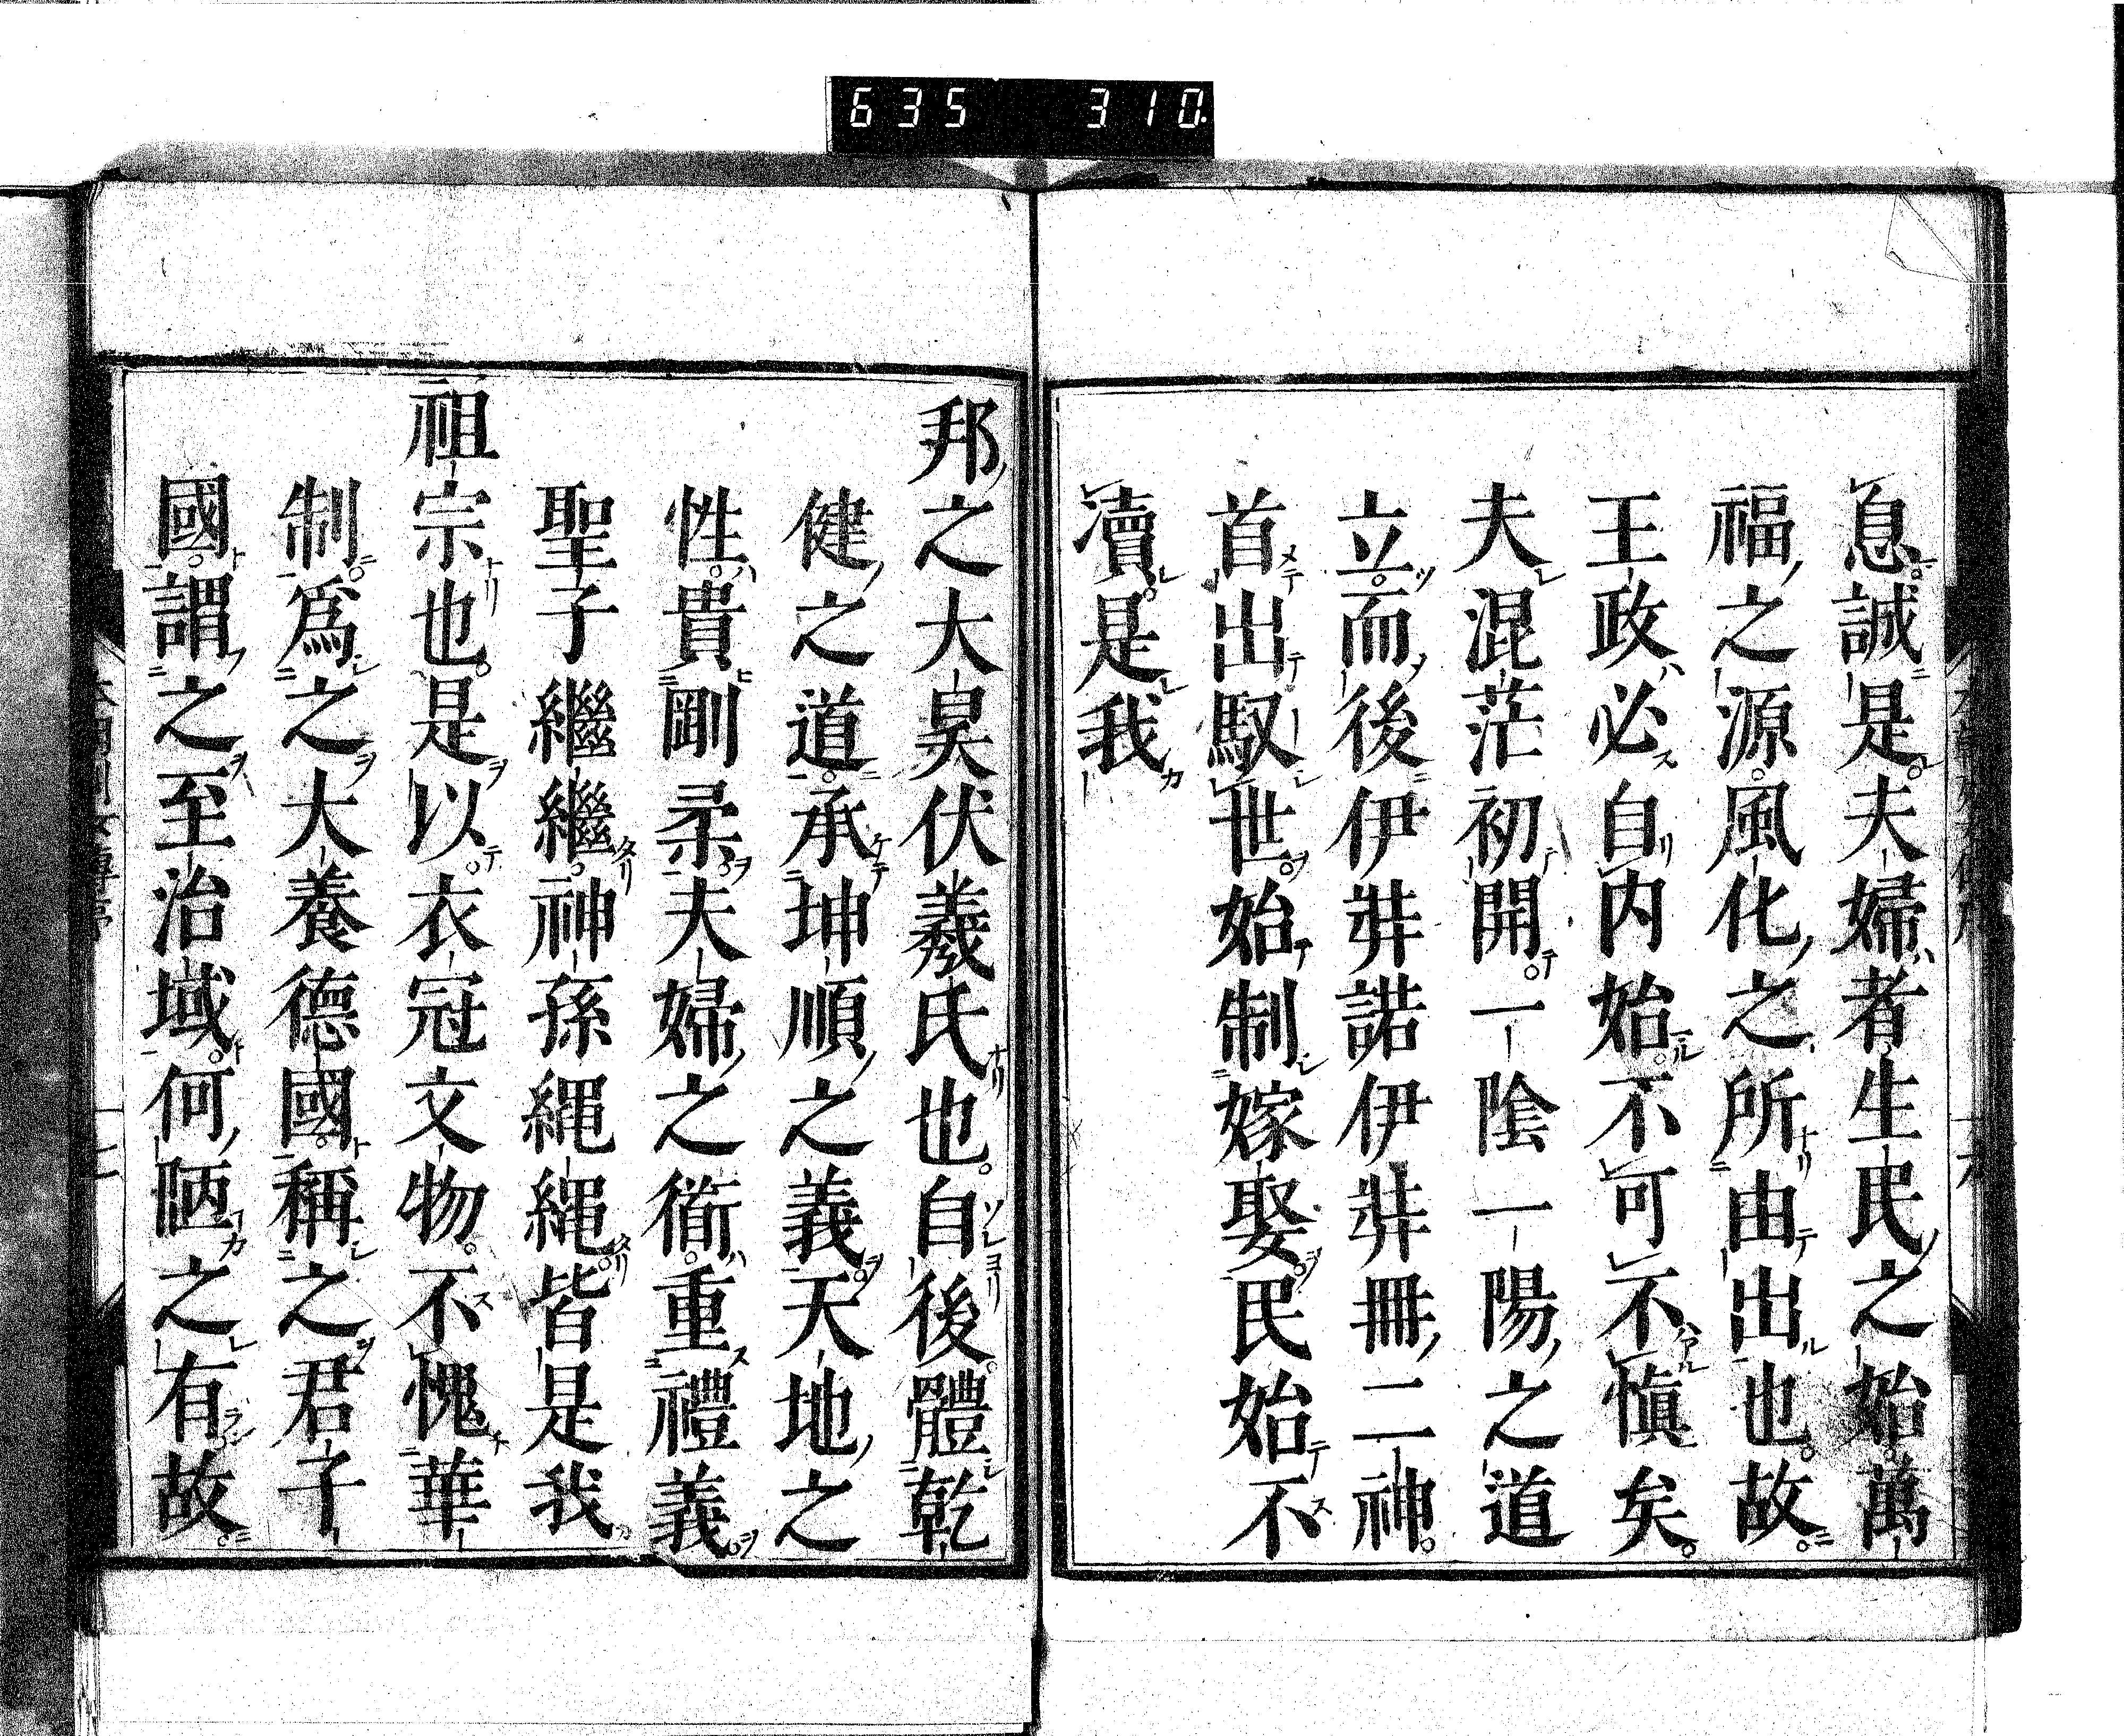 635 310
息誠是夫婦者生民之始萬
福之源。風化之所由出也。故。
王政必自内始。不可不愼矣。
夫混茫初開。一陰一陽之道
立。而後伊弉諾伊弉冊二神。
首出馭世。始制嫁娶。民始不
瀆。是我
邦之大昊伏羲氏也。自後。體乾
健之道。承坤順之義。天地之
性。貴剛柔。夫婦之衜。重禮義。
聖子繼繼。神孫繩繩。皆是我
祖宗也。是以。衣冠文物。不愧華
制。爲之大養德國。稱之君子
國。謂之至治域。何陋之有。故。